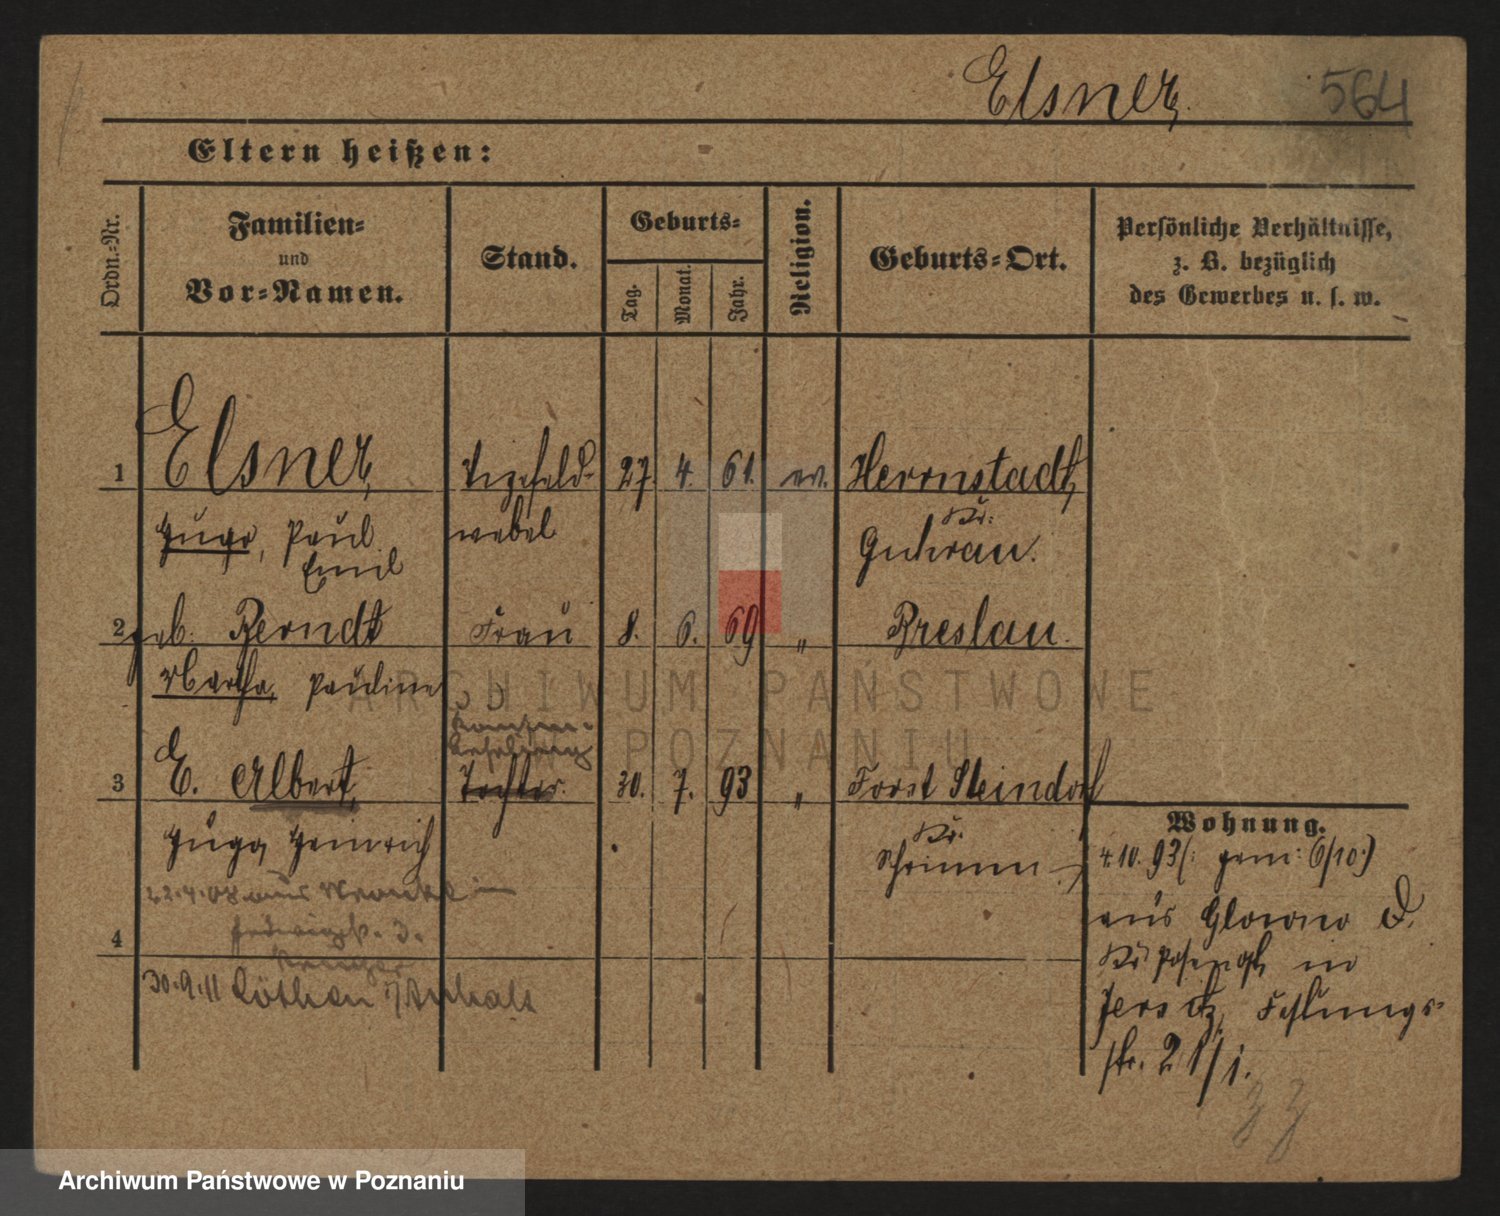 Elsner, 564
Eltern heißen:
Ordn.-Nr.
Familien-
und
Vor-Namen.
Stand.
Geburts-
Tag.
Monat.
Jahr.
Religion.
Geburts-Ort.
Persönliche Verhältnisse,
z. B. bezüglich
des Gewerbes u. s. w.
1 Elsner, Vizefeld- 27. 4. 61. ev. Herrnstadt,
Hugo, Paul webel Kr:
Emil Guhrau.
2 geb. Berndt Frau 8. 6. 69 " Breslau.
Martha, Pauline
3 E. Albert, Tochter. 30. 7. 93 " Forst Steindorf
Hugo, Heinrich Kr.
Schrimm
Wohnung.
4.10.93 (: gem: 6/10.)
aus Glowno D.
Kr Posen in
Jersitz, Festungs-
str. 21/1.
22.4.08 aus
4
30.9.11 Cöthen i/Anhalt
ARCHIWUM PAŃSTWOWE
W POZNANIU
Archiwum Państwowe w Poznaniu